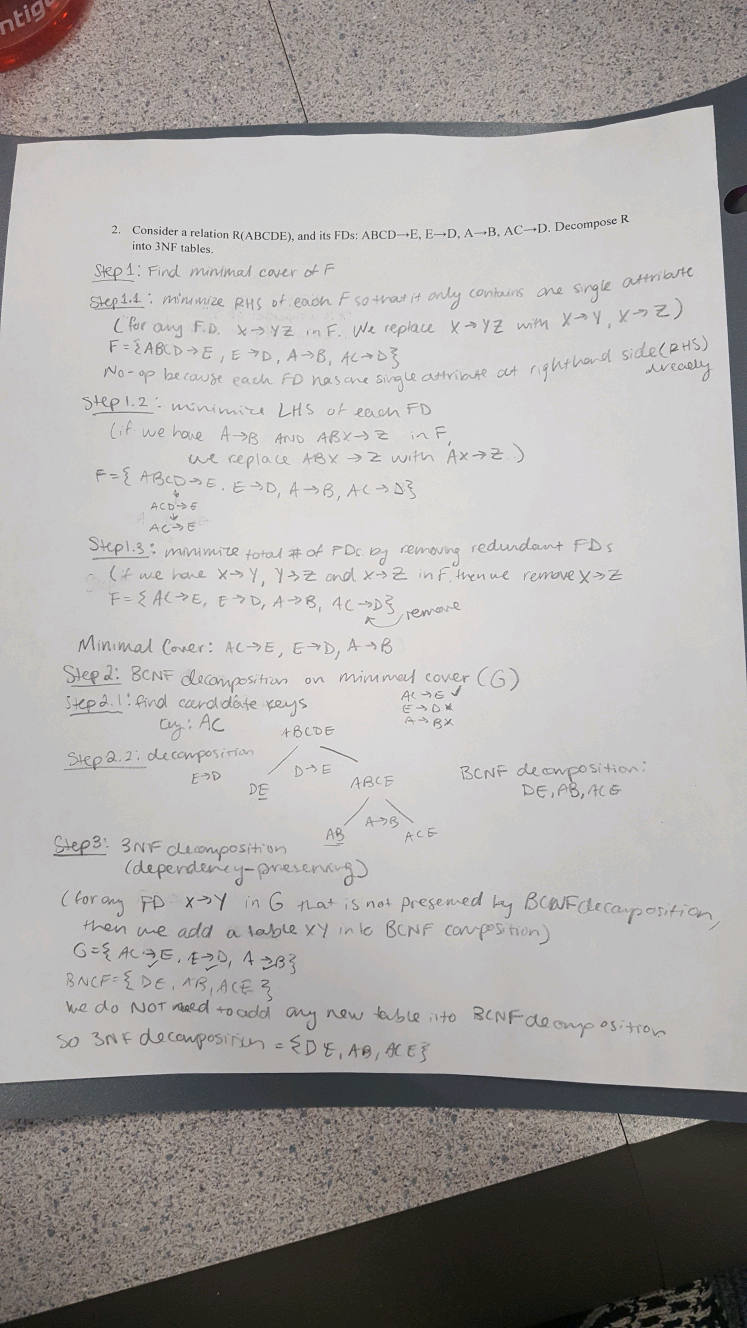 ntig
2. Consider a relation R(ABCDE), and its FDs: ABCD→E, E→D, A→B, AC→D. Decompose R
into 3NF tables.
Step 1: Find minimal cover of F
Step 1.1: minimize RHS of each F so that it only contains one single attribute
(for any F.D. X→YZ in F. We replace X→YZ with X→Y, X→Z)
F={ABCD→E, E→D, A→B, AC→D}
No-op because each FD has one single attribute at righthand side(RHS)
already
Step 1.2: minimize LHS of each FD
(if we have A→B AND ABX→Z in F,
we replace ABX→Z with AX→Z.)
F={ABCD→E. E→D, A→B, AC→D}
↓
ACD→E
↓
AC→E
Step 1.3: minimize total # of FDs by removing redundant FDs
(if we have X→Y, Y→Z and X→Z in F. then we remove X→Z
F={AC→E, E→D, A→B, AC→D} remove
Minimal Cover: AC→E, E→D, A→B
Step 2: BCNF decomposition on minimal cover (G)
Step 2.1: find candidate keys
AC→E ✓
E→D x
A→B x
key: AC
ABCDE
Step 2.2: decomposition
E→D
D→E
DE
ABCE
BCNF decomposition:
DE, AB, ACE
A→B
AB
ACE
Step 3: 3NF decomposition
(dependency-preserving)
(for any FD X→Y in G that is not preserved by BCNF decomposition,
then we add a table XY into BCNF composition)
G={AC→E, E→D, A→B}
BNCF={DE, AB, ACE}
We do NOT need to add any new table into BCNF decomposition
So 3NF decomposition = {DE, AB, ACE}